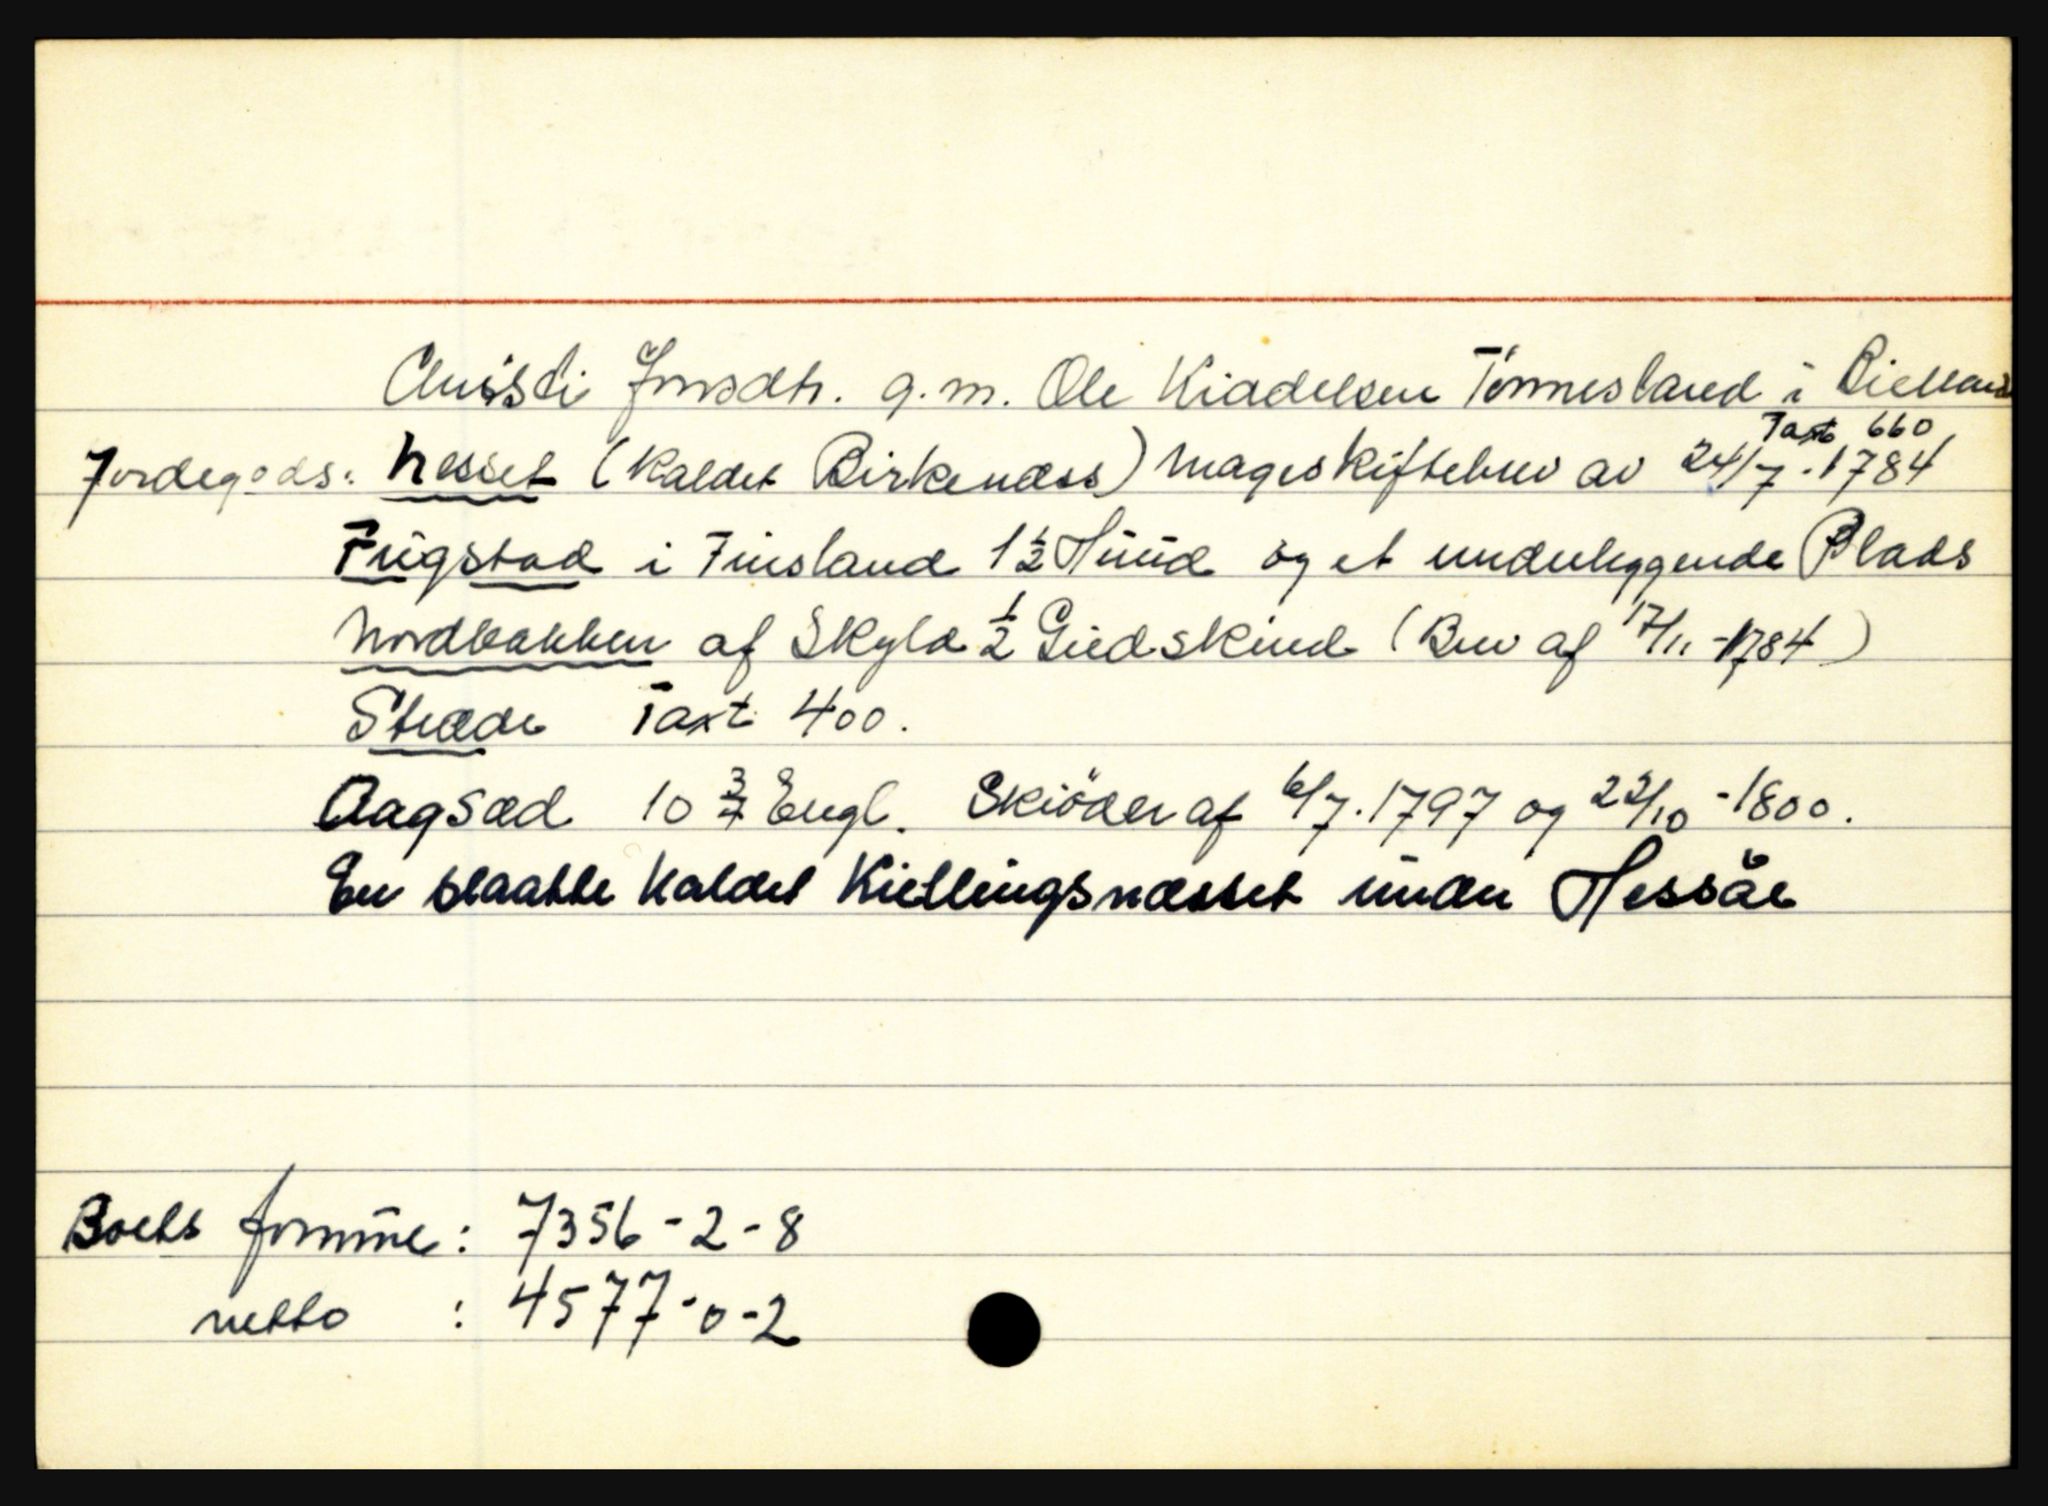 Christi Jonsdtr. g.m. Ole Kiadelsen Tönnesland i Bielland
Taxt 660
Jordegods: Nesset (kaldet Birkenæss) Mageskiftebrev av 24/7. 1784
Fugstad i Finsland 1½ Huud og et underliggende Plads
Nordbakken af Skyld ½ Giedskind (Brev af 17/11 - 1784)
Stræde Taxt 400.
Aagsæd 10 3/7 Engl. Skiöder af 6/7. 1797 og 22/10 - 1800.
En slaatte kaldet Kiellingsnæsset under Hessåe
Boets formue: 7356 - 2 - 8
netto : 4577 - 0 - 2